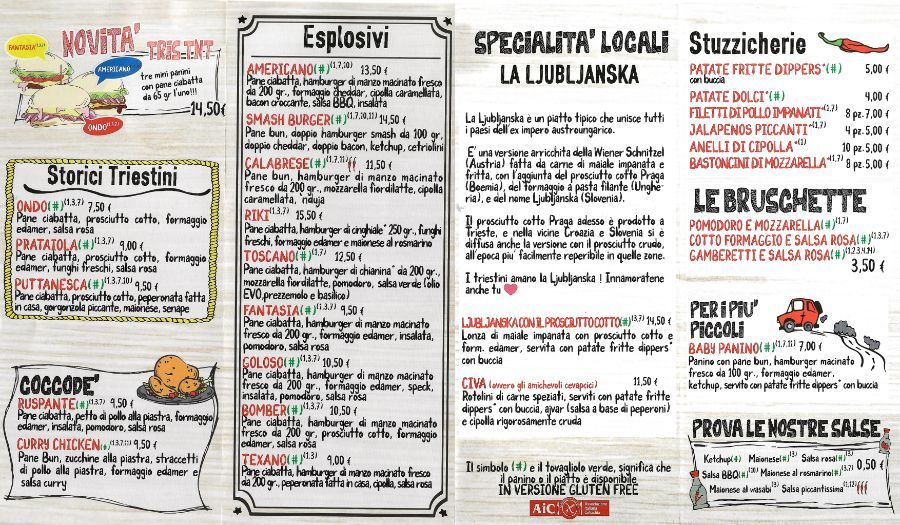 NOVITA' TRIS.TNT
FANTASIA(1,3,7)
AMERICANO
ONDO(1,3,7)
tre mini panini
con pane ciabatta
da 65 gr l'uno!!!
14,50 €
Storici Triestini
ONDO(#)(1,3,7) 7,50 €
Pane ciabatta, prosciutto cotto, formaggio
edamer, salsa rosa
PRATAIOLA(#)(1,3,7) 9,00 €
Pane ciabatta, prosciutto cotto, formaggio
edamer, funghi freschi, salsa rosa
PUTTANESCA(#)(1,3,7,10) 9,50 €
Pane ciabatta, prosciutto cotto, peperonata fatta
in casa, gorgonzola piccante, maionese, senape
COCCODE'
RUSPANTE(#)(1,3,7) 9,50 €
Pane ciabatta, petto di pollo alla piastra, formaggio
edamer, insalata, salsa rosa
CURRY CHICKEN(#)(1,3,7,11) 9,50 €
Pane Bun, zucchine alla piastra, straccetti
di pollo alla piastra, formaggio edamer e
salsa curry
Esplosivi
AMERICANO(#)(1,7,10) 13,50 €
Pane ciabatta, hamburger di manzo macinato fresco
da 200 gr., formaggio cheddar, cipolla caramellata,
bacon croccante, salsa BBQ, insalata
SMASH BURGER(#)(1,7,10,11) 14,50 €
Pane bun, doppio hamburger smash da 100 gr.,
doppio cheddar, doppio bacon, ketchup, cetriolini
CALABRESE(#)(1,7,11) 11,50 €
Pane bun, hamburger di manzo macinato
fresco da 200 gr., mozzarella fiordilatte, cipolla
caramellata, 'nduja
RIKI(#)(1,3,7) 15,50 €
Pane ciabatta, hamburger di cinghiale* 250 gr., funghi
freschi, formaggio edamer e maionese al rosmarino
TOSCANO(#)(1,7) 12,50 €
Pane ciabatta, hamburger di chianina* da 200 gr.,
mozzarella fiordilatte, pomodoro, salsa verde (olio
EVO,prezzemolo e basilico)
FANTASIA(#)(1,3,7) 9,50 €
Pane ciabatta, hamburger di manzo macinato
fresco da 200 gr., formaggio edamer, insalata,
pomodoro, salsa rosa
GOLOSO(#)(1,3,7) 10,50 €
Pane ciabatta, hamburger di manzo macinato
fresco da 200 gr., formaggio edamer, speck,
insalata, pomodoro, salsa rosa
BOMBER(#)(1,3,7) 10,50 €
Pane ciabatta, hamburger di manzo macinato
fresco da 200 gr., prosciutto cotto, formaggio
edamer, salsa rosa
TEXANO(#)(1,3) 9,00 €
Pane ciabatta, hamburger di manzo macinato fresco
da 200 gr., peperonata fatta in casa, cipolla, salsa rosa
SPECIALITA' LOCALI
LA LJUBLJANSKA
La Ljubljanska è un piatto tipico che unisce tutti
i paesi dell'ex impero austroungarico.
E' una versione arricchita della Wiener Schnitzel
(Austria) fatta da carne di maiale impanata e
fritta, con l'aggiunta del prosciutto cotto Praga
(Boemia), del formaggio a pasta filante (Unghe-
ria), e del nome Ljubljanska (Slovenia).
Il prosciutto cotto Praga adesso è prodotto a
Trieste, e nella vicine Croazia e Slovenia si è
diffusa anche la versione con il prosciutto crudo,
all'epoca piu' facilmente reperibile in quelle zone.
I triestini amano la Ljubljanska ! Innamoratene
anche tu
LJUBLJANSKA CON IL PROSCIUTTO COTTO(#)(3,7) 14,50 €
Lonza di maiale impanata con prosciutto cotto e
form. edamer, servita con patate fritte dippers*
con buccia
CIVA (ovvero gli amichevoli cevapcici) 11,50 €
Rotolini di carne speziati, serviti con patate fritte
dippers* con buccia, ajvar (salsa a base di peperoni)
e cipolla rigorosamente cruda
Il simbolo (#) e il tovagliolo verde, significa che
il panino o il piatto è disponibile
IN VERSIONE GLUTEN FREE
AiC Associazione Italiana Celiachia
Stuzzicherie
PATATE FRITTE DIPPERS*(#) 5,00 €
con buccia
PATATE DOLCI*(#) 4,00 €
FILETTI DI POLLO IMPANATI*(1,7) 8 pz. 7,00 €
JALAPENOS PICCANTI*(1,7) 4 pz. 5,00 €
ANELLI DI CIPOLLA*(1) 10 pz. 5,00 €
BASTONCINI DI MOZZARELLA*(1,7) 8 pz. 5,00 €
LE BRUSCHETTE
POMODORO E MOZZARELLA(#)(1,7)
COTTO FORMAGGIO E SALSA ROSA(#)(1,3,7)
GAMBERETTI E SALSA ROSA(#)(1,2,3,4,14)
3,50 €
PER I PIU'
PICCOLI
BABY PANINO(#)(1,7,11) 7,00 €
Panino con pane bun, hamburger macinato
fresco da 100 gr., formaggio edamer,
ketchup, servito con patate fritte dippers* con buccia
PROVA LE NOSTRE SALSE
Ketchup(#) Maionese(#)(3) Salsa rosa(#)(3)
Salsa BBQ(#)(10) Maionese al rosmarino(#)(3,7) 0,50 €
Maionese al wasabi(3) Salsa piccantissima(1,12)